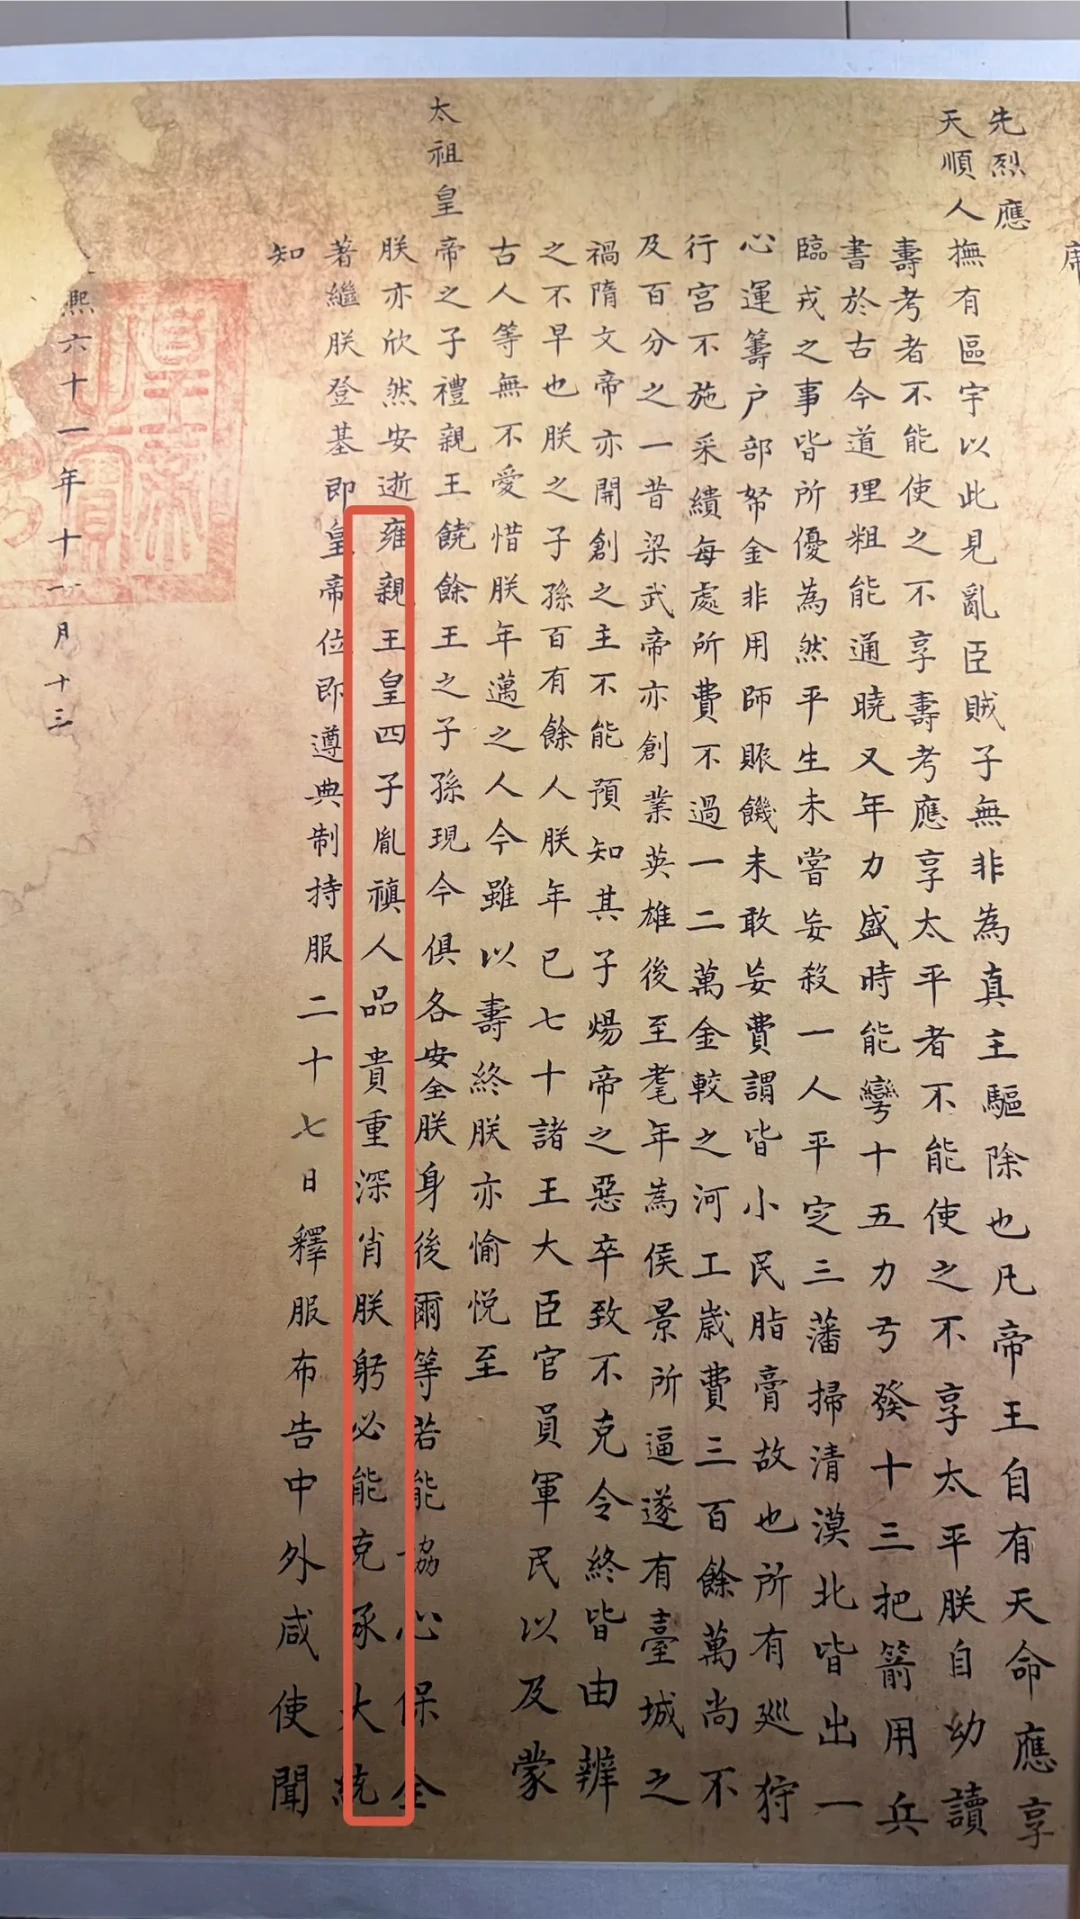 席
先烈應
天順人撫有區宇以此見亂臣賊子無非為真主驅除也凡帝王自有天命應享
壽考者不能使之不享壽考應享太平者不能使之不享太平朕自幼讀
書於古今道理粗能通曉又年力盛時能彎十五力弓發十三把箭用兵
臨戎之事皆所優為然平生未嘗妄殺一人平定三藩掃清漠北皆出一
心運籌户部帑金非用師賑饑未敢妄費謂皆小民脂膏故也所有巡狩
行宮不施采繢每處所費不過一二萬金較之河工歲費三百餘萬尚不
及百分之一昔梁武帝亦創業英雄後至耄年為侯景所逼遂有臺城之
禍隋文帝亦開創之主不能預知其子煬帝之惡卒致不克令終皆由辨
之不早也朕之子孫百有餘人朕年已七十諸王大臣官員軍民以及蒙
古人等無不愛惜朕年邁之人今雖以壽終朕亦愉悅至
太祖皇帝之子禮親王饒餘王之子孫現今俱各安全朕身後爾等若能協心保全
朕亦欣然安逝雍親王皇四子胤禛人品貴重深肖朕躬必能克承大統
著繼朕登基即皇帝位即遵典制持服二十七日釋服布告中外咸使聞
知
熙六十一年十一月十三